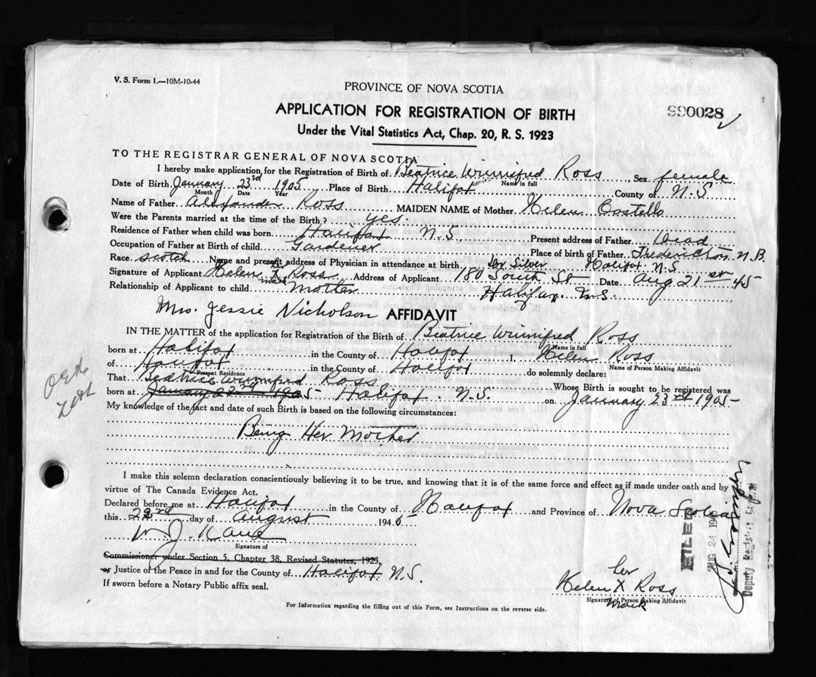 V. S. Form 1.—10M-10-44
PROVINCE OF NOVA SCOTIA
APPLICATION FOR REGISTRATION OF BIRTH
990028
Under the Vital Statistics Act, Chap. 20, R. S. 1923
TO THE REGISTRAR GENERAL OF NOVA SCOTIA
I hereby make application for the Registration of Birth of Beatrice Winnifred Ross Sex female
Name in full
Date of Birth January 23rd 1905 Place of Birth Halifax County of N.S
Month Date Year
Name of Father Alexander Ross MAIDEN NAME of Mother Helen Costello
Were the Parents married at the time of the Birth? yes.
Residence of Father when child was born Halifax N.S. Present address of Father Dead
Occupation of Father at Birth of child Gardener Place of birth of Father Fredericton N.B.
Race Scotch Name and present address of Physician in attendance at birth Dr Silver Halifax N.S.
Signature of Applicant Helen X Ross Address of Applicant 180 South St Date Aug 21st 45
her mark
Relationship of Applicant to child Mother Halifax N.S.
Mrs. Jessie Nicholson AFFIDAVIT
IN THE MATTER of the application for Registration of the Birth of Beatrice Winnifred Ross
Name in full
born at Halifax in the County of Halifax I, Helen Ross
Name of Person Making Affidavit
of Halifax in the County of Halifax do solemnly declare:
Present Residence
That Beatrice Winnifred Ross Whose Birth is sought to be registered was
born at January 23rd 1905 Halifax. N.S. on January 23rd 1905
My knowledge of the fact and date of such Birth is based on the following circumstances:
Being Her Mother
I make this solemn declaration conscientiously believing it to be true, and knowing that it is of the same force and effect as if made under oath and by
virtue of The Canada Evidence Act.
Declared before me at Halifax in the County of Halifax and Province of Nova Scotia
this 22nd day of August 1945
Signature of
Commissioner under Section 5, Chapter 38, Revised Statutes, 1923,
or Justice of the Peace in and for the County of Halifax N.S.
If sworn before a Notary Public affix seal.
her
Helen X Ross
Signature of Person Making Affidavit
Mark
For Information regarding the filling out of this Form, see Instructions on the reverse side.
FILED
AUG 24 194
Deputy Registrar General